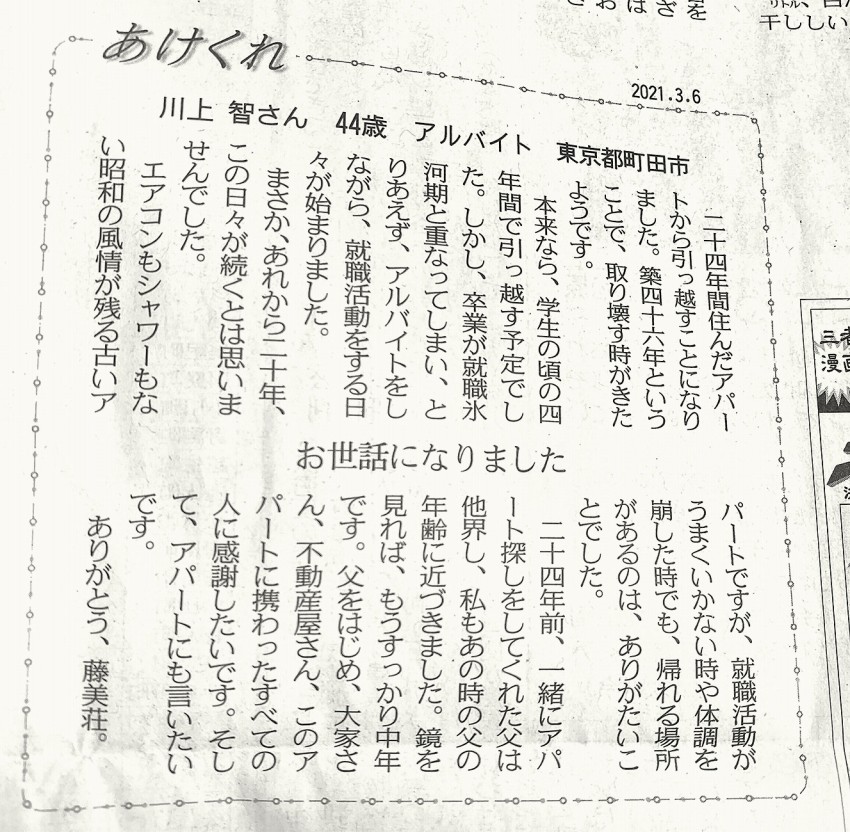 あけくれ
2021.3.6
川上 智さん 44歳 アルバイト 東京都町田市
二十四年間住んだアパー
トから引っ越すことになり
ました。築四十六年という
ことで、取り壊す時がきた
ようです。
本来なら、学生の頃の四
年間で引っ越す予定でし
た。しかし、卒業が就職氷
河期と重なってしまい、と
りあえず、アルバイトをし
ながら、就職活動をする日
々が始まりました。
まさか、あれから二十年、
この日々が続くとは思いま
せんでした。
エアコンもシャワーもな
い昭和の風情が残る古いア
お世話になりました
パートですが、就職活動が
うまくいかない時や体調を
崩した時でも、帰れる場所
があるのは、ありがたいこ
とでした。
二十四年前、一緒にアパ
ート探しをしてくれた父は
他界し、私もあの時の父の
年齢に近づきました。鏡を
見れば、もうすっかり中年
です。父をはじめ、大家さ
ん、不動産屋さん、このア
パートに携わったすべての
人に感謝したいです。そし
て、アパートにも言いたい
です。
ありがとう、藤美荘。
三者
漫画